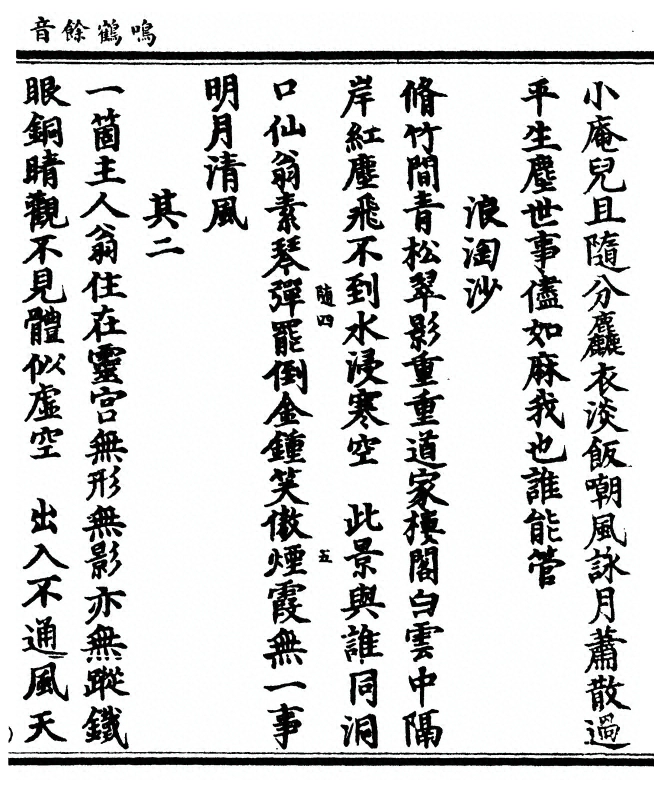 鳴鶴餘音
小庵兒且隨分麤衣淡飯嘲風詠月蕭散過
平生塵世事儘如麻我也誰能管
浪淘沙
脩竹間青松翠影重重道家樓閣白雲中隔
岸紅塵飛不到水浸寒空　此景與誰同洞
隨四
五
口仙翁素琴彈罷倒金鍾笑傲煙霞無一事
明月清風
其二
一箇主人翁住在靈宮無形無影亦無蹤鐵
眼銅睛觀不見體似虛空　出入不通風天